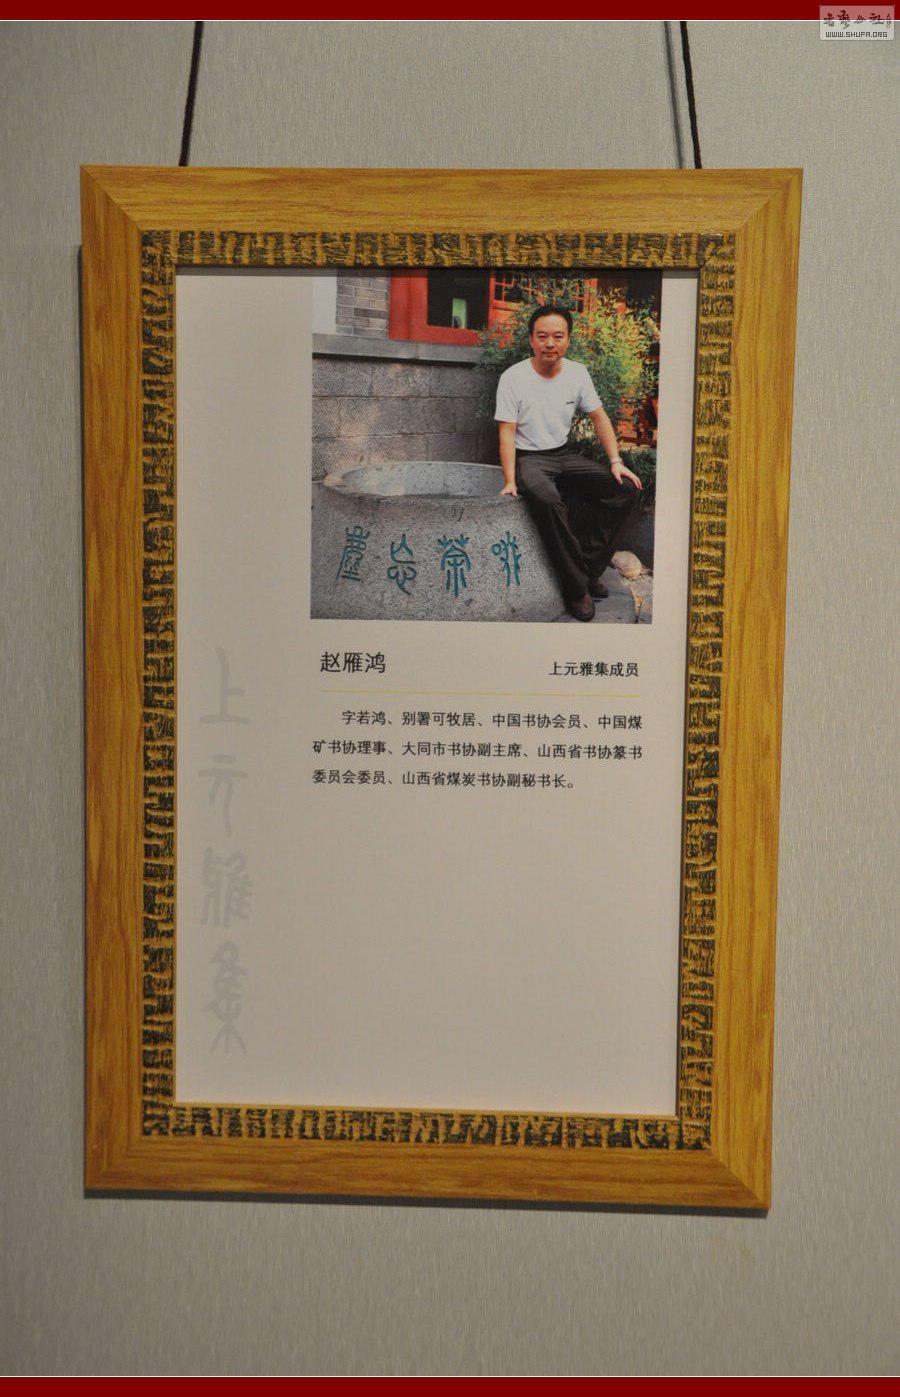 WWW.SHUFA.ORG
啜茶忘尘
赵雁鸿
上元雅集成员
字若鸿、别署可牧居、中国书协会员、中国煤
矿书协理事、大同市书协副主席、山西省书协篆书
委员会委员、山西省煤炭书协副秘书长。
上元雅集